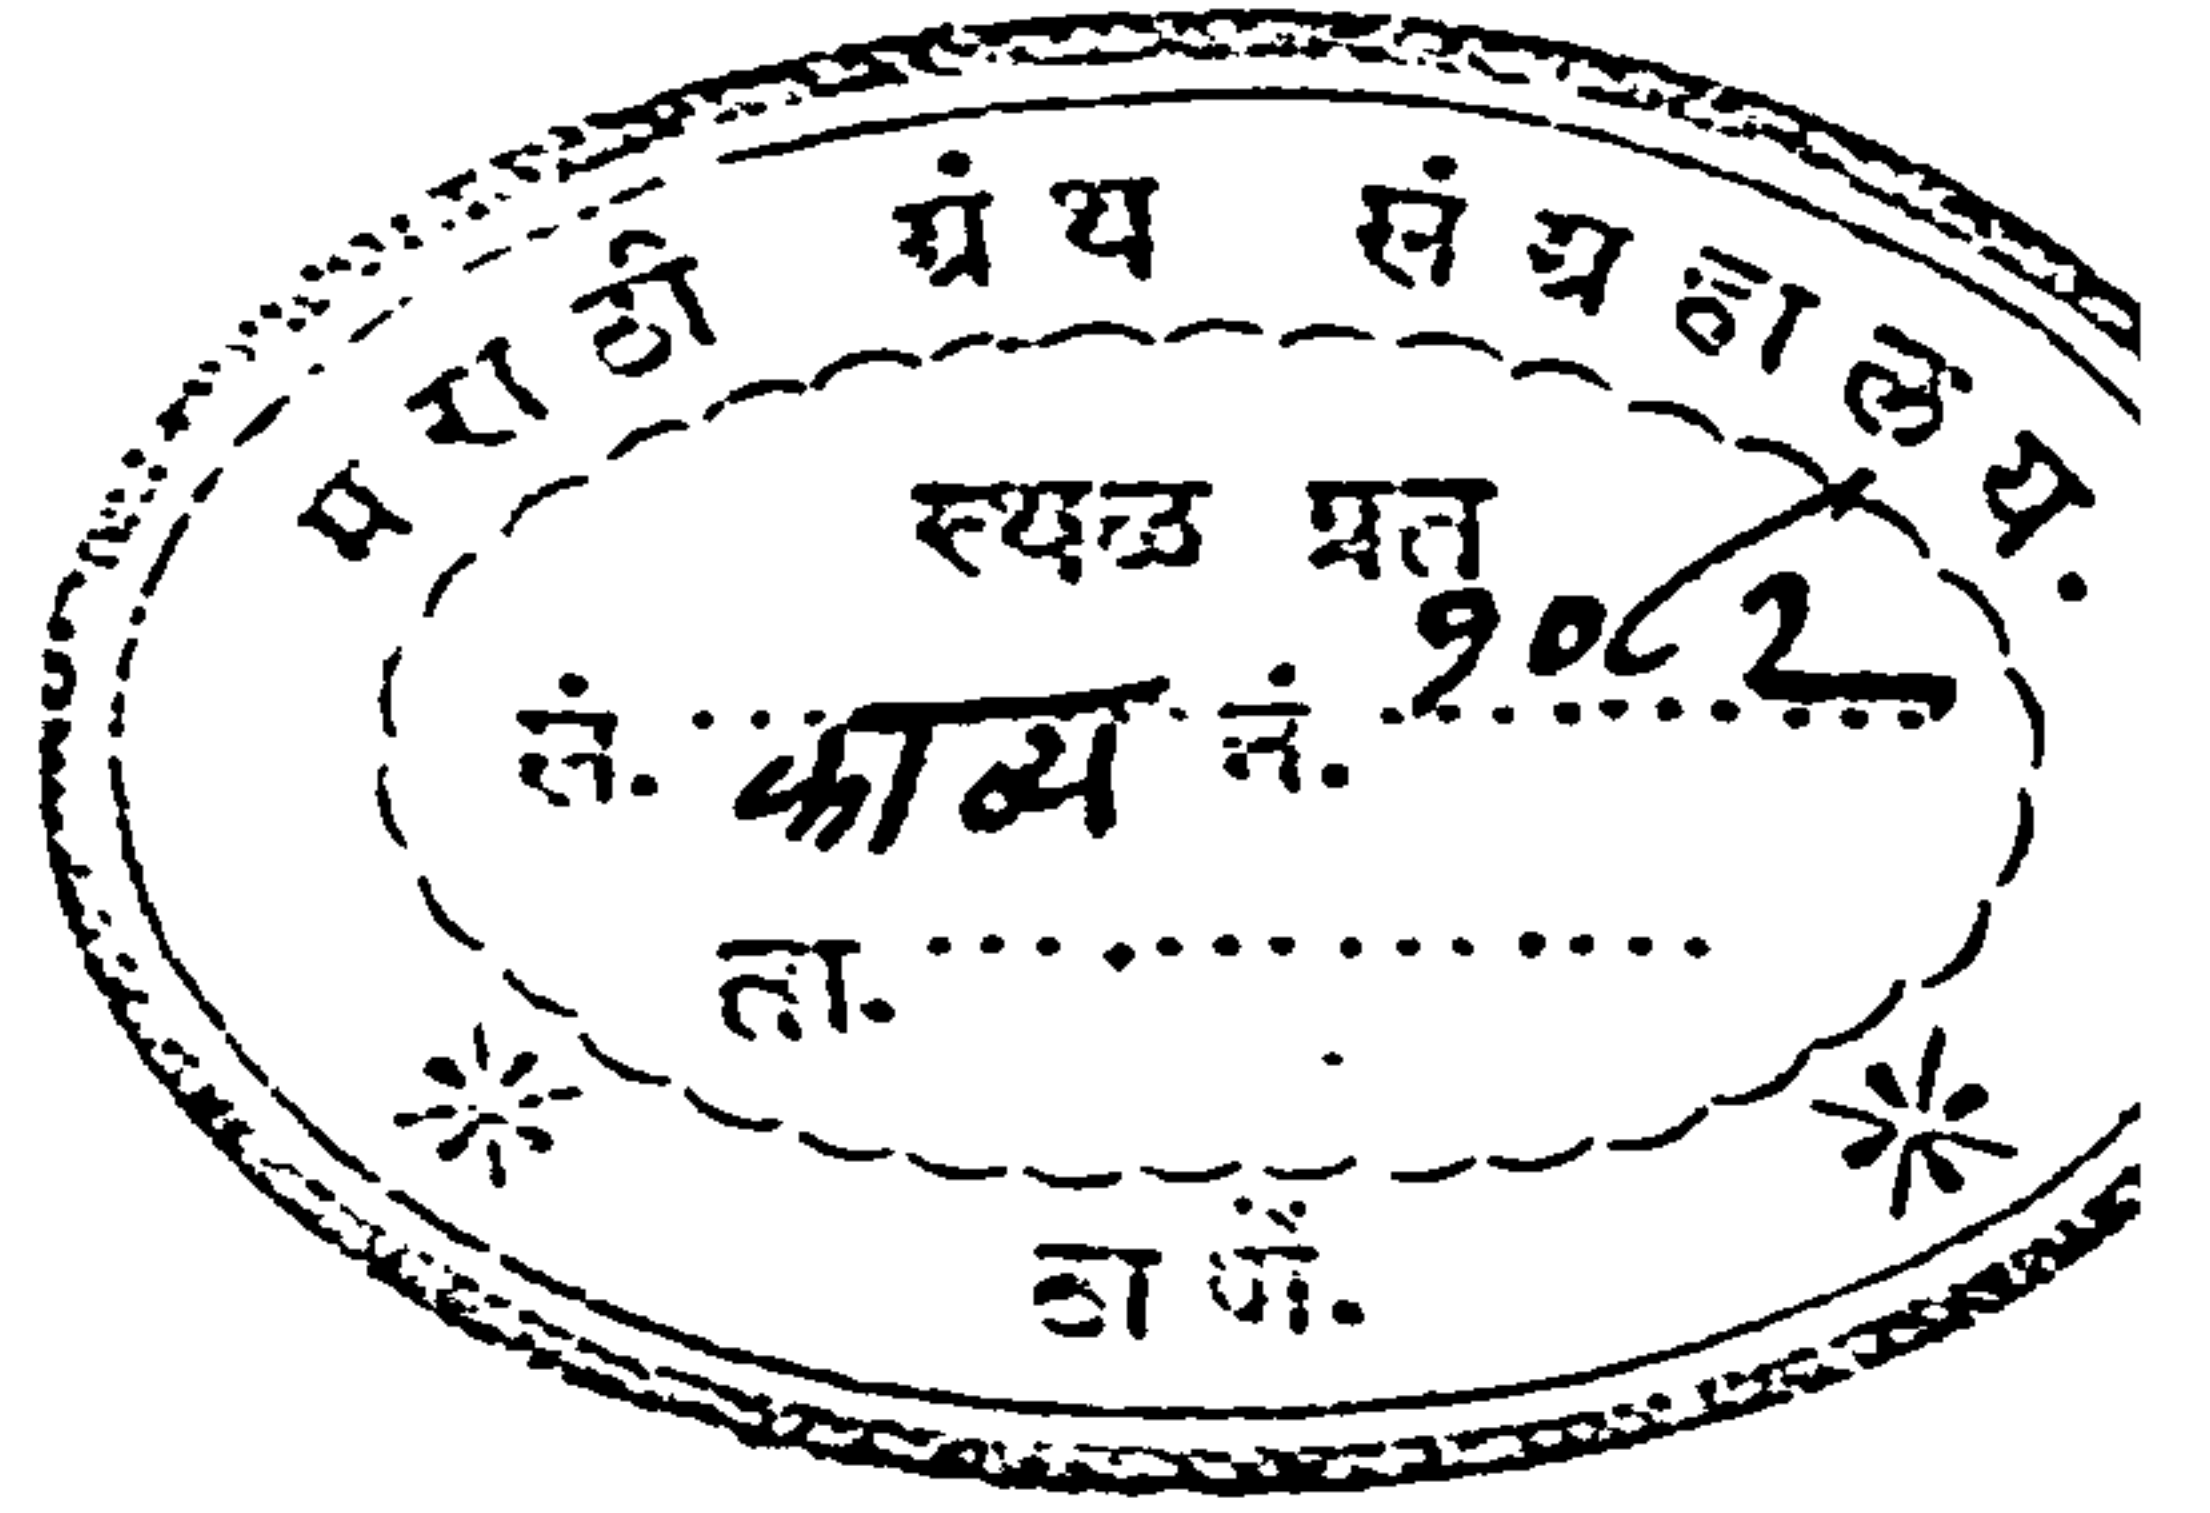 मराठी ग्रंथ संग्रहालय.
स्थळ प्रत
सं. काव्य नं. १०८२
ता.
ठाणें.